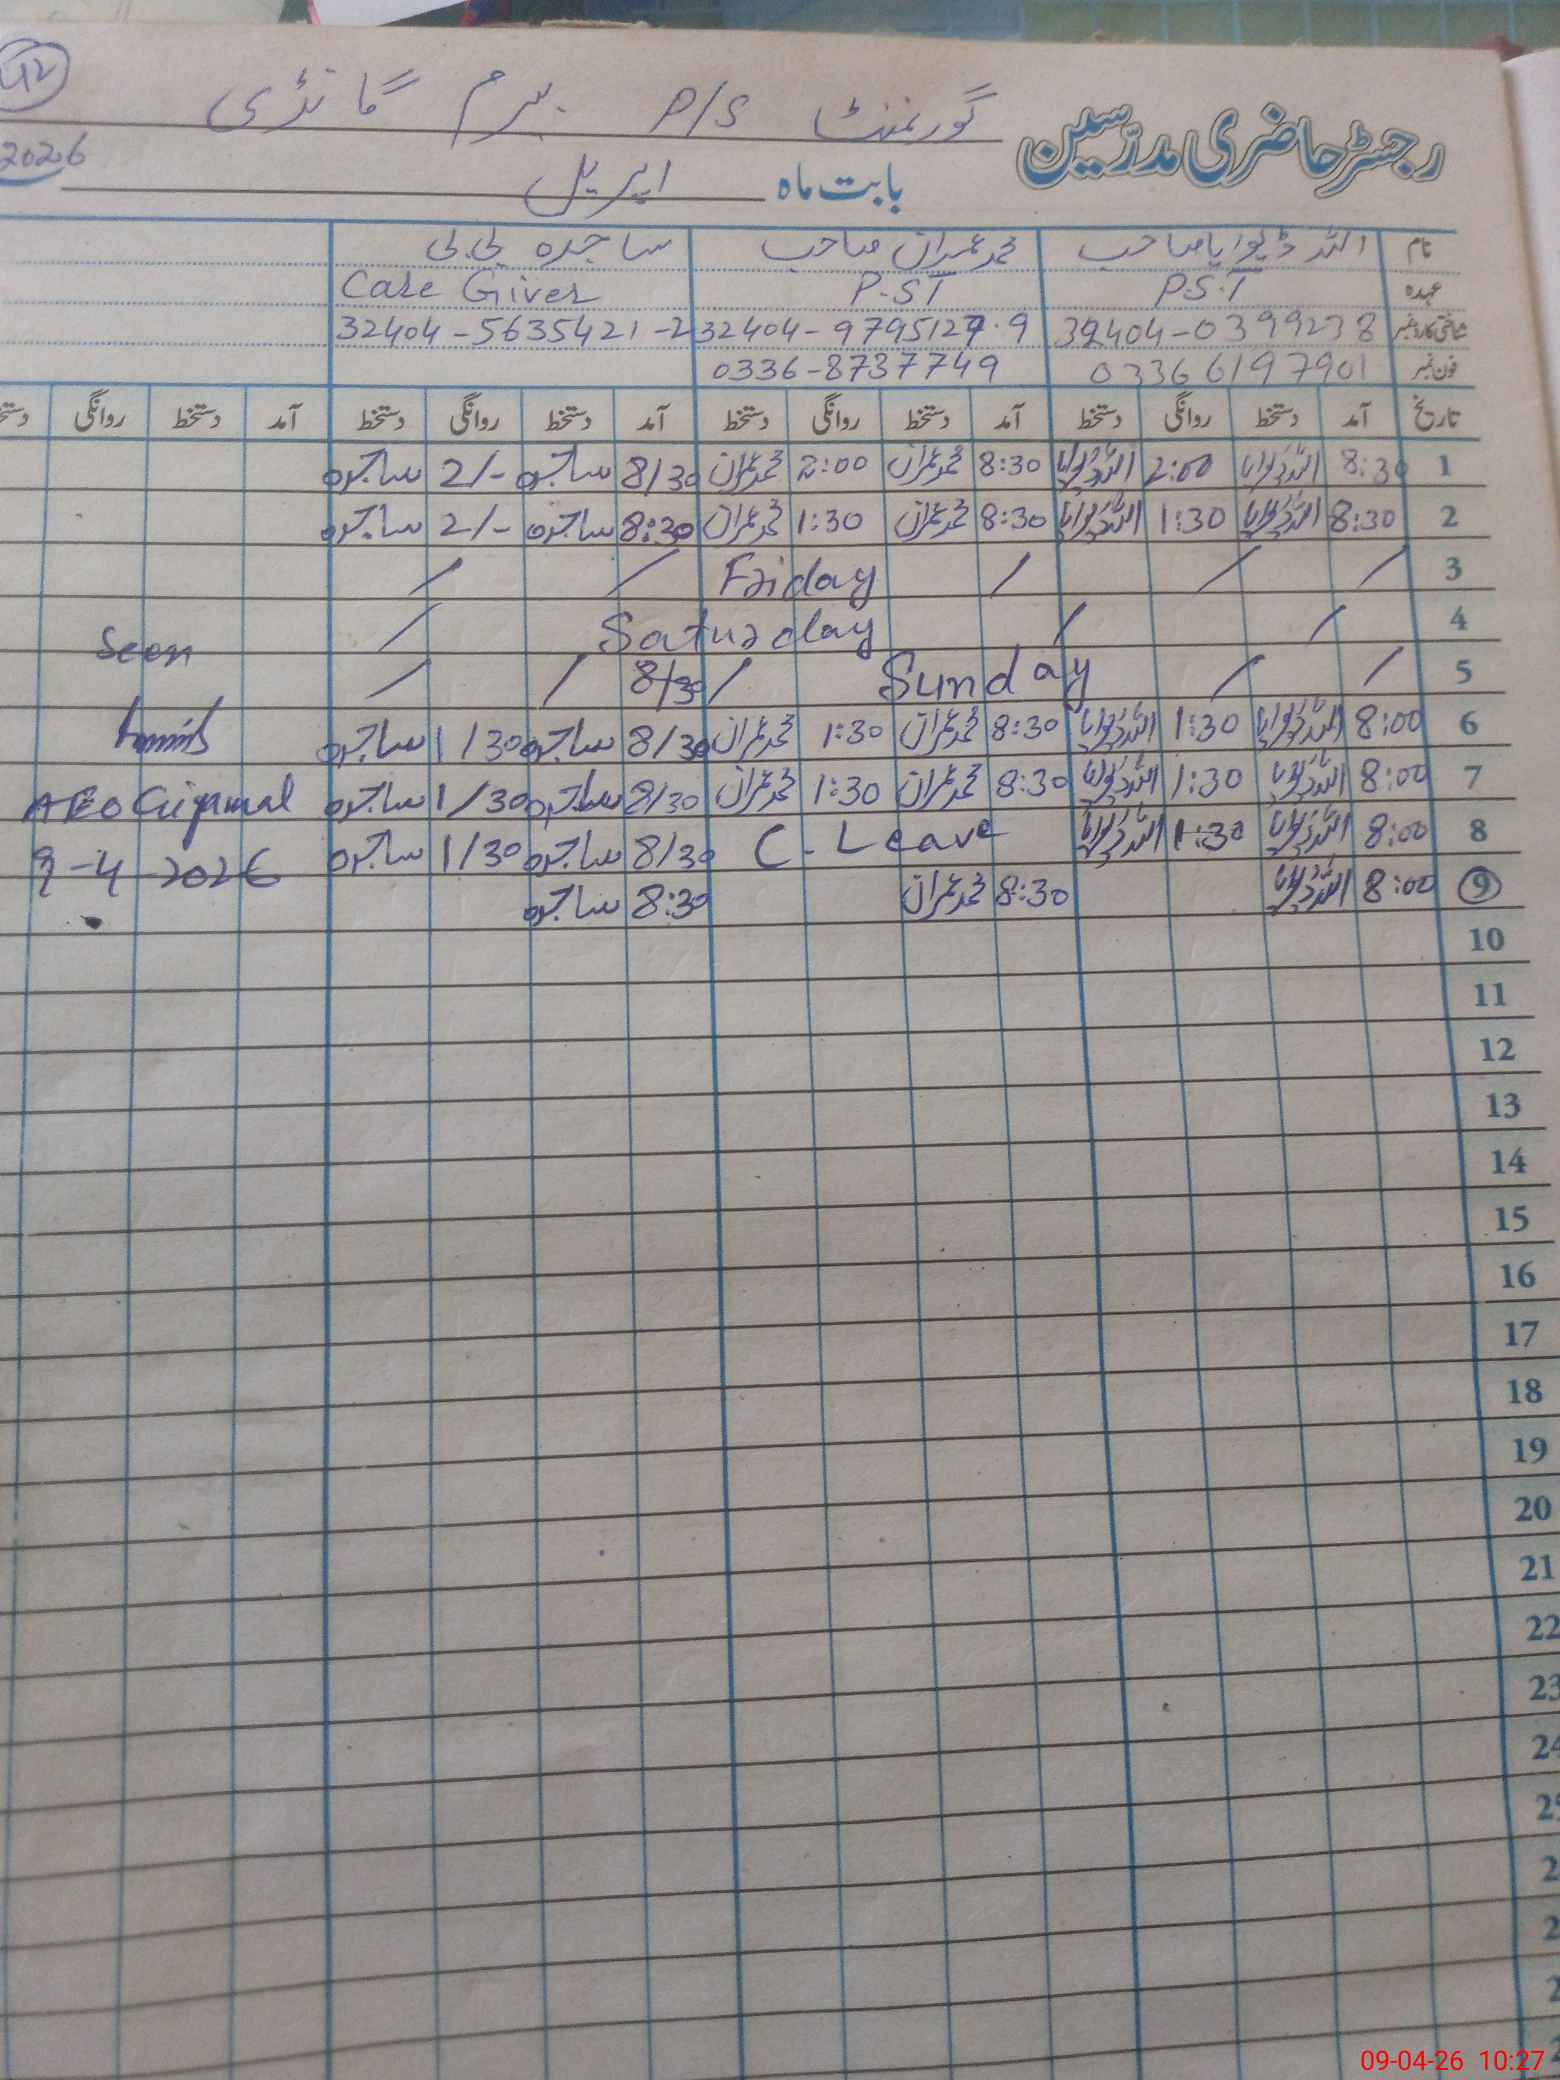 42
گورنمنٹ P/S بیرم گانڈی
رجسٹر حاضری مدرسین
بابت ماہ اپریل 2026
نام اللہ ڈیوایا صاحب محمد عمران صاحب ساجدہ بی بی
عہدہ P.S.T P.ST Care Giver
شناختی کارڈ نمبر 32404-0399238 32404-9795127.9 32404-5635421-2
فون نمبر 03366197901 0336-8737749
تاریخ آمد دستخط روانگی دستخط آمد دستخط روانگی دستخط آمد دستخط روانگی دستخط آمد دستخط روانگی دستخط
1 8:30 اللہ ڈیوایا 2:00 اللہ ڈیوایا 8:30 محمد عمران 2:00 محمد عمران 8/30 ساجدہ 2/- ساجدہ
2 8:30 اللہ ڈیوایا 1:30 اللہ ڈیوایا 8:30 محمد عمران 1:30 محمد عمران 8:30 ساجدہ 2/- ساجدہ
3 / / / Friday / /
4 / / Saturday /
5 / / Sunday / 8/30 / /
6 8:00 اللہ ڈیوایا 1:30 اللہ ڈیوایا 8:30 محمد عمران 1:30 محمد عمران 8/30 ساجدہ 1/30 ساجدہ
7 8:00 اللہ ڈیوایا 1:30 اللہ ڈیوایا 8:30 محمد عمران 1:30 محمد عمران 8/30 ساجدہ 1/30 ساجدہ
8 8:00 اللہ ڈیوایا 1:30 اللہ ڈیوایا C. Leave 8/30 ساجدہ 1/30 ساجدہ
9 8:00 اللہ ڈیوایا 8:30 محمد عمران 8:30 ساجدہ
Seen
AEO
9-4-2026
10
11
12
13
14
15
16
17
18
19
20
21
22
23
24
09-04-26 10:27